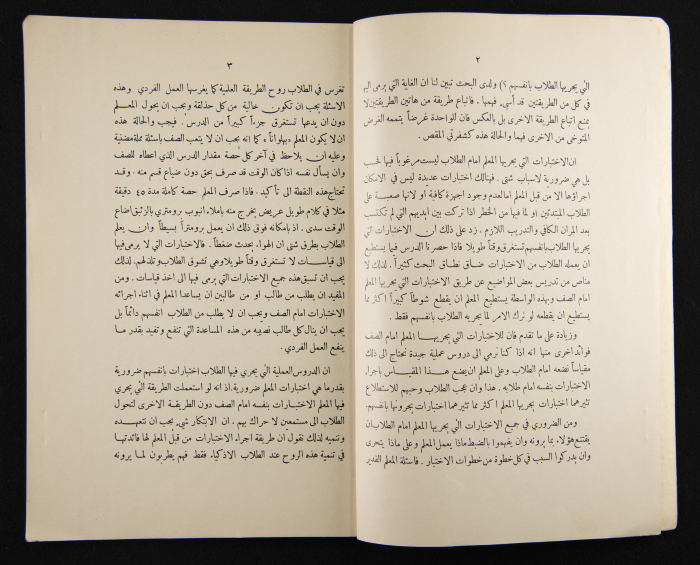 ٢
التي يجريها الطلاب بانفسهم ؟) ولدى البحث تبين لنا ان الغاية التي يرمى اليها
في كل من الطريقتين قد أسيء فهمها . فاتباع طريقة من هاتين الطريقتين لا
يمنع اتباع الطريقة الاخرى بل بالعكس فان للواحدة غرضاً يتممه الغرض
المتوخى من الاخرى فهما والحالة هذه كشفرتي المقص .
ان الاختبارات التي يجريها المعلم امام الطلاب ليست مرغوباً فيها فحسب
بل هي ضرورية لاسباب شتى . فهنالك اختبارات عديدة ليس في الامكان
اجراؤها الا من قبل المعلم اما لعدم وجود اجهزة كافية او لانها صعبة على
الطلاب المبتدئين او لما فيها من الخطر اذا تركت بين ايديهم التي لم تكتسب
بعد المران الكافي والتدريب اللازم . زد على ذلك ان الاختبارات التي
يجريها الطلاب بانفسهم تستغرق وقتاً طويلا فاذا حصرنا الدرس فيما يستطيع
ان يعمله الطلاب من الاختبارات ضاق نطاق البحث كثيراً . لذلك لا
مناص من تدريس بعض المواضيع عن طريق الاختبارات التي يجريها المعلم
امام الصف وبهذه الواسطة يستطيع المعلم ان يقطع شوطاً كبيراً اكثر مما
يستطيع ان يقطعه لو ترك الامر لما يجريه الطلاب بانفسهم فقط .
وزيادة على ما تقدم فان للاختبارات التي يجريها المعلم امام الصف
فوائد اخرى منها انه اذا كنا نرمي الى دروس عملية جيدة نحتاج الى ذلك
مقياساً نضعه امام الطلاب وعلى المعلم ان يضع هذا المقياس باجراء
الاختبارات بنفسه امام طلابه . هذا وان عجب الطلاب وحبهم للاستطلاع
تثيرهما اختبارات يجريها المعلم اكثر مما تثيرهما اختبارات يجرونها بانفسهم .
ومن الضروري في جميع الاختبارات التي يجريها المعلم امام الطلاب ان
يقتنع هؤلاء بما يرونه وان يفهموا بالضبط ماذا يعمل المعلم وعلى ماذا يتحرى
وان يدركوا السبب في كل خطوة من خطوات الاختبار . فاسئلة المعلم القدير
٣
تغرس في الطلاب روح الطريقة العلمية كما يغرسها العمل الفردي . وهذه
الاسئلة يجب ان تكون خالية من كل حذلقة ويجب ان يحول المعلم
دون ان يدعها تستغرق جزءاً كبيراً من الدرس . فيجب والحالة هذه
ان لا يكون المعلم « بهلواناً » كما انه يجب ان لا يتعب الصف باسئلة مملة مضنية
وعليه ان يلاحظ في آخر كل حصة مقدار الدرس الذي اعطاه للصف
وان يسأل نفسه اذا كان الوقت قد صرف بحق دون ضياع قسم منه . وقد
تحتاج هذه النقطة الى تأكيد . فاذا صرف المعلم حصة كاملة مدة ٤٥ دقيقة
مثلا في كلام طويل عريض يخرج منه باملاء انبوب برومتري بالزئبق اضاع
الوقت سدى . اذ بامكانه فوق ذلك ان يعمل برومتراً بسيطاً وان يعلم
الطلاب بطرق شتى ان الهواء يحدث ضغطاً . فالاختبارات التي لا يرمى فيها
الى قياسات لا تستغرق وقتاً طويلا وهي تشوق الطلاب وتلذهم . لذلك
يجب ان تسبق هذه جميع الاختبارات التي يرمى فيها الى اخذ قياسات . ومن
المفيد ان يطلب من طالب او من طالبين ان يساعدا المعلم في اثناء اجرائه
الاختبارات امام الصف ويجب ان لا يطلب من الطلاب انفسهم دائماً بل
يجب ان ينال كل طالب نصيبه من هذه المساعدة التي تنفع وتفيد بقدر ما
ينفع العمل الفردي .
ان الدروس العملية التي يجري فيها الطلاب اختبارات بانفسهم ضرورية
بقدر ما هي اختبارات المعلم ضرورية . اذ انه لو استعملت الطريقة التي يجري
فيها المعلم الاختبارات بنفسه امام الصف دون الطريقة الاخرى لتحول
الطلاب الى مستمعين لا حراك بهم . ان الابتكار شيء يجب ان نتعهده
وننميه لذلك نقول ان طريقة اجراء الاختبارات من قبل المعلم لها فائدتها
في تنمية هذه الروح عند الطلاب الاذكياء فقط . فهم يطربون لما يرونه